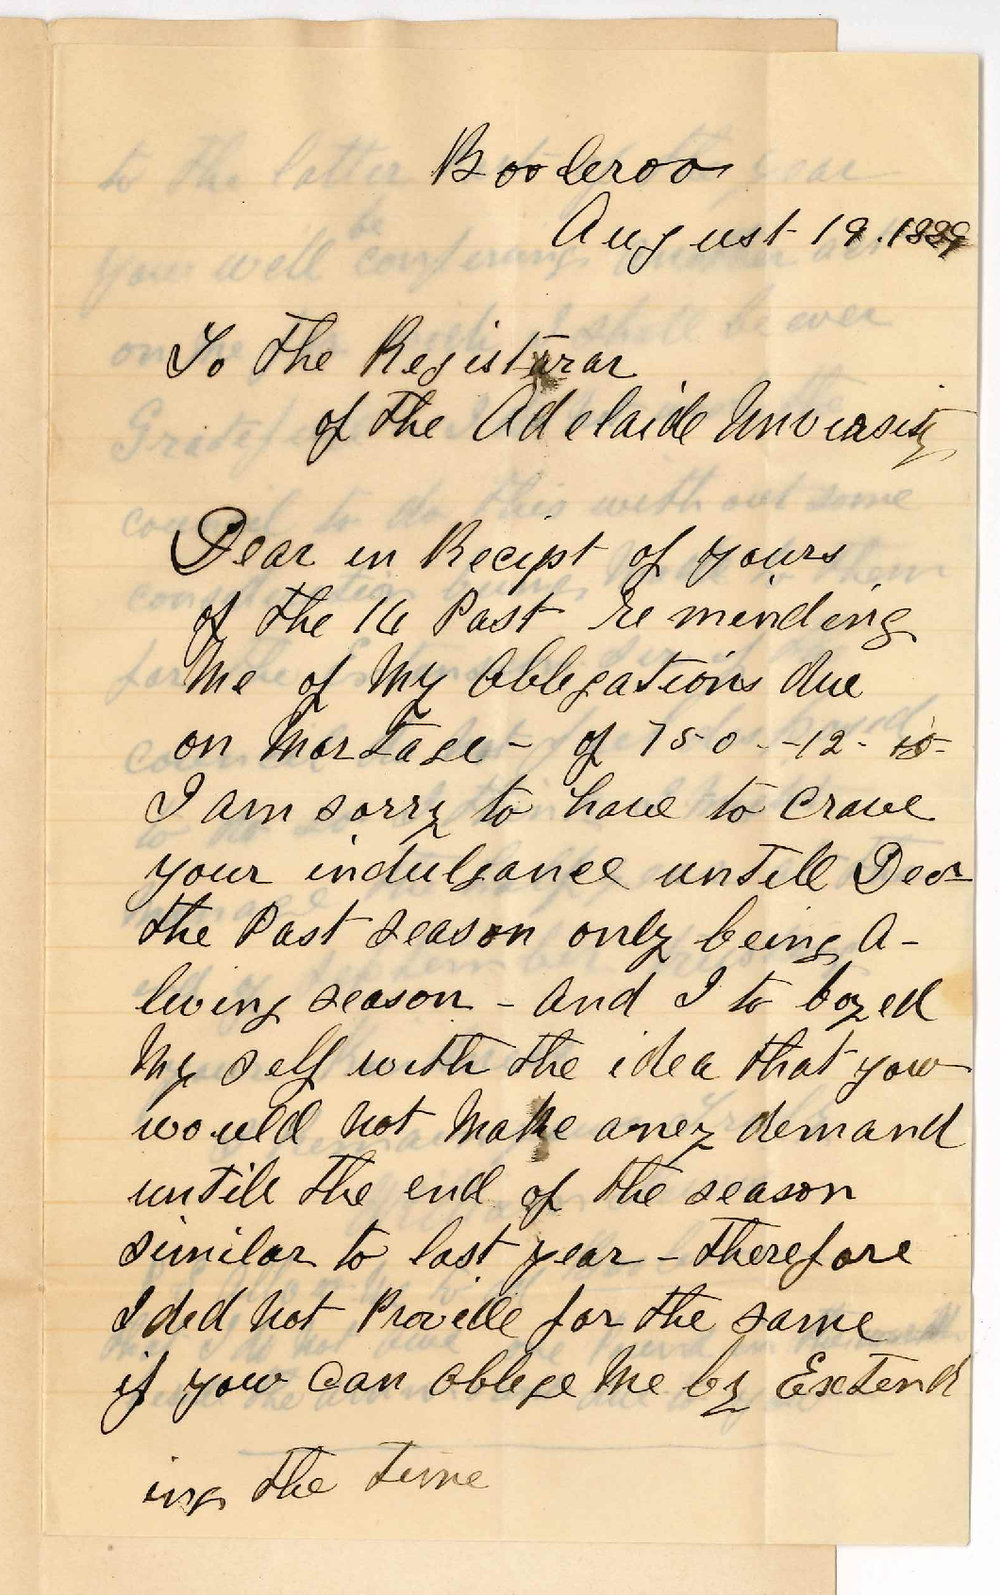 Booleroo
August 19. 1889
To the Registrar
of the Adelaide University
Dear in Recipt of yours
of the 16 Past re minding
Me of My Obblegations due
on Mortage - of 750 - -12 -
I am sorry to have to crave
your indulgance untill Decr
the Past season only being A-
living season - and I to boyed
My self with the idea that you
would not Make aney demand
untill the end of the season
similar to last year - therefore
I ded not Provide for the same
if you can oblege Me by Extend
ing the time